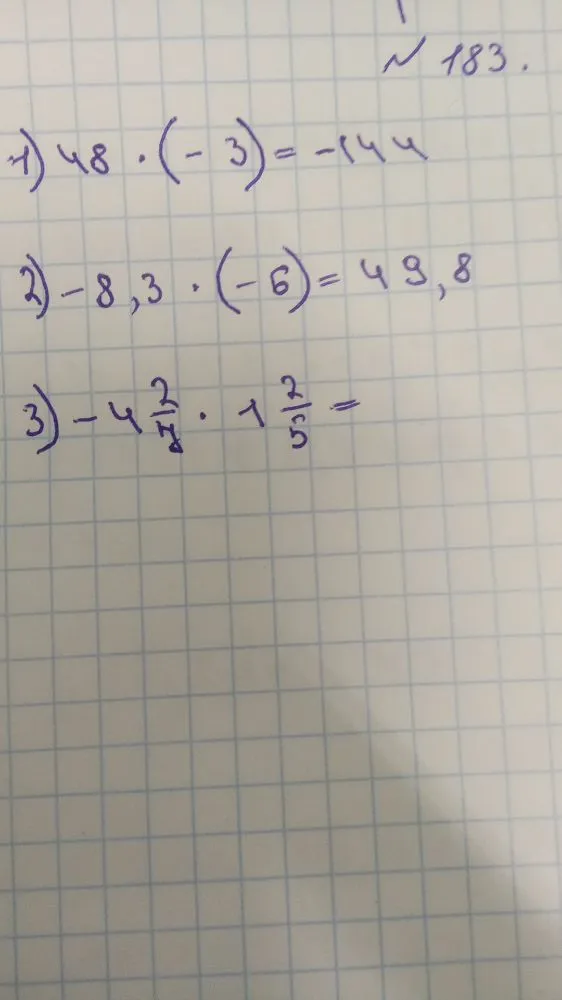 № 183.
1) 48 · (- 3) = -144
2) - 8,3 · (- 6) = 49,8
3) - 4 2/7 · 1 2/5 =